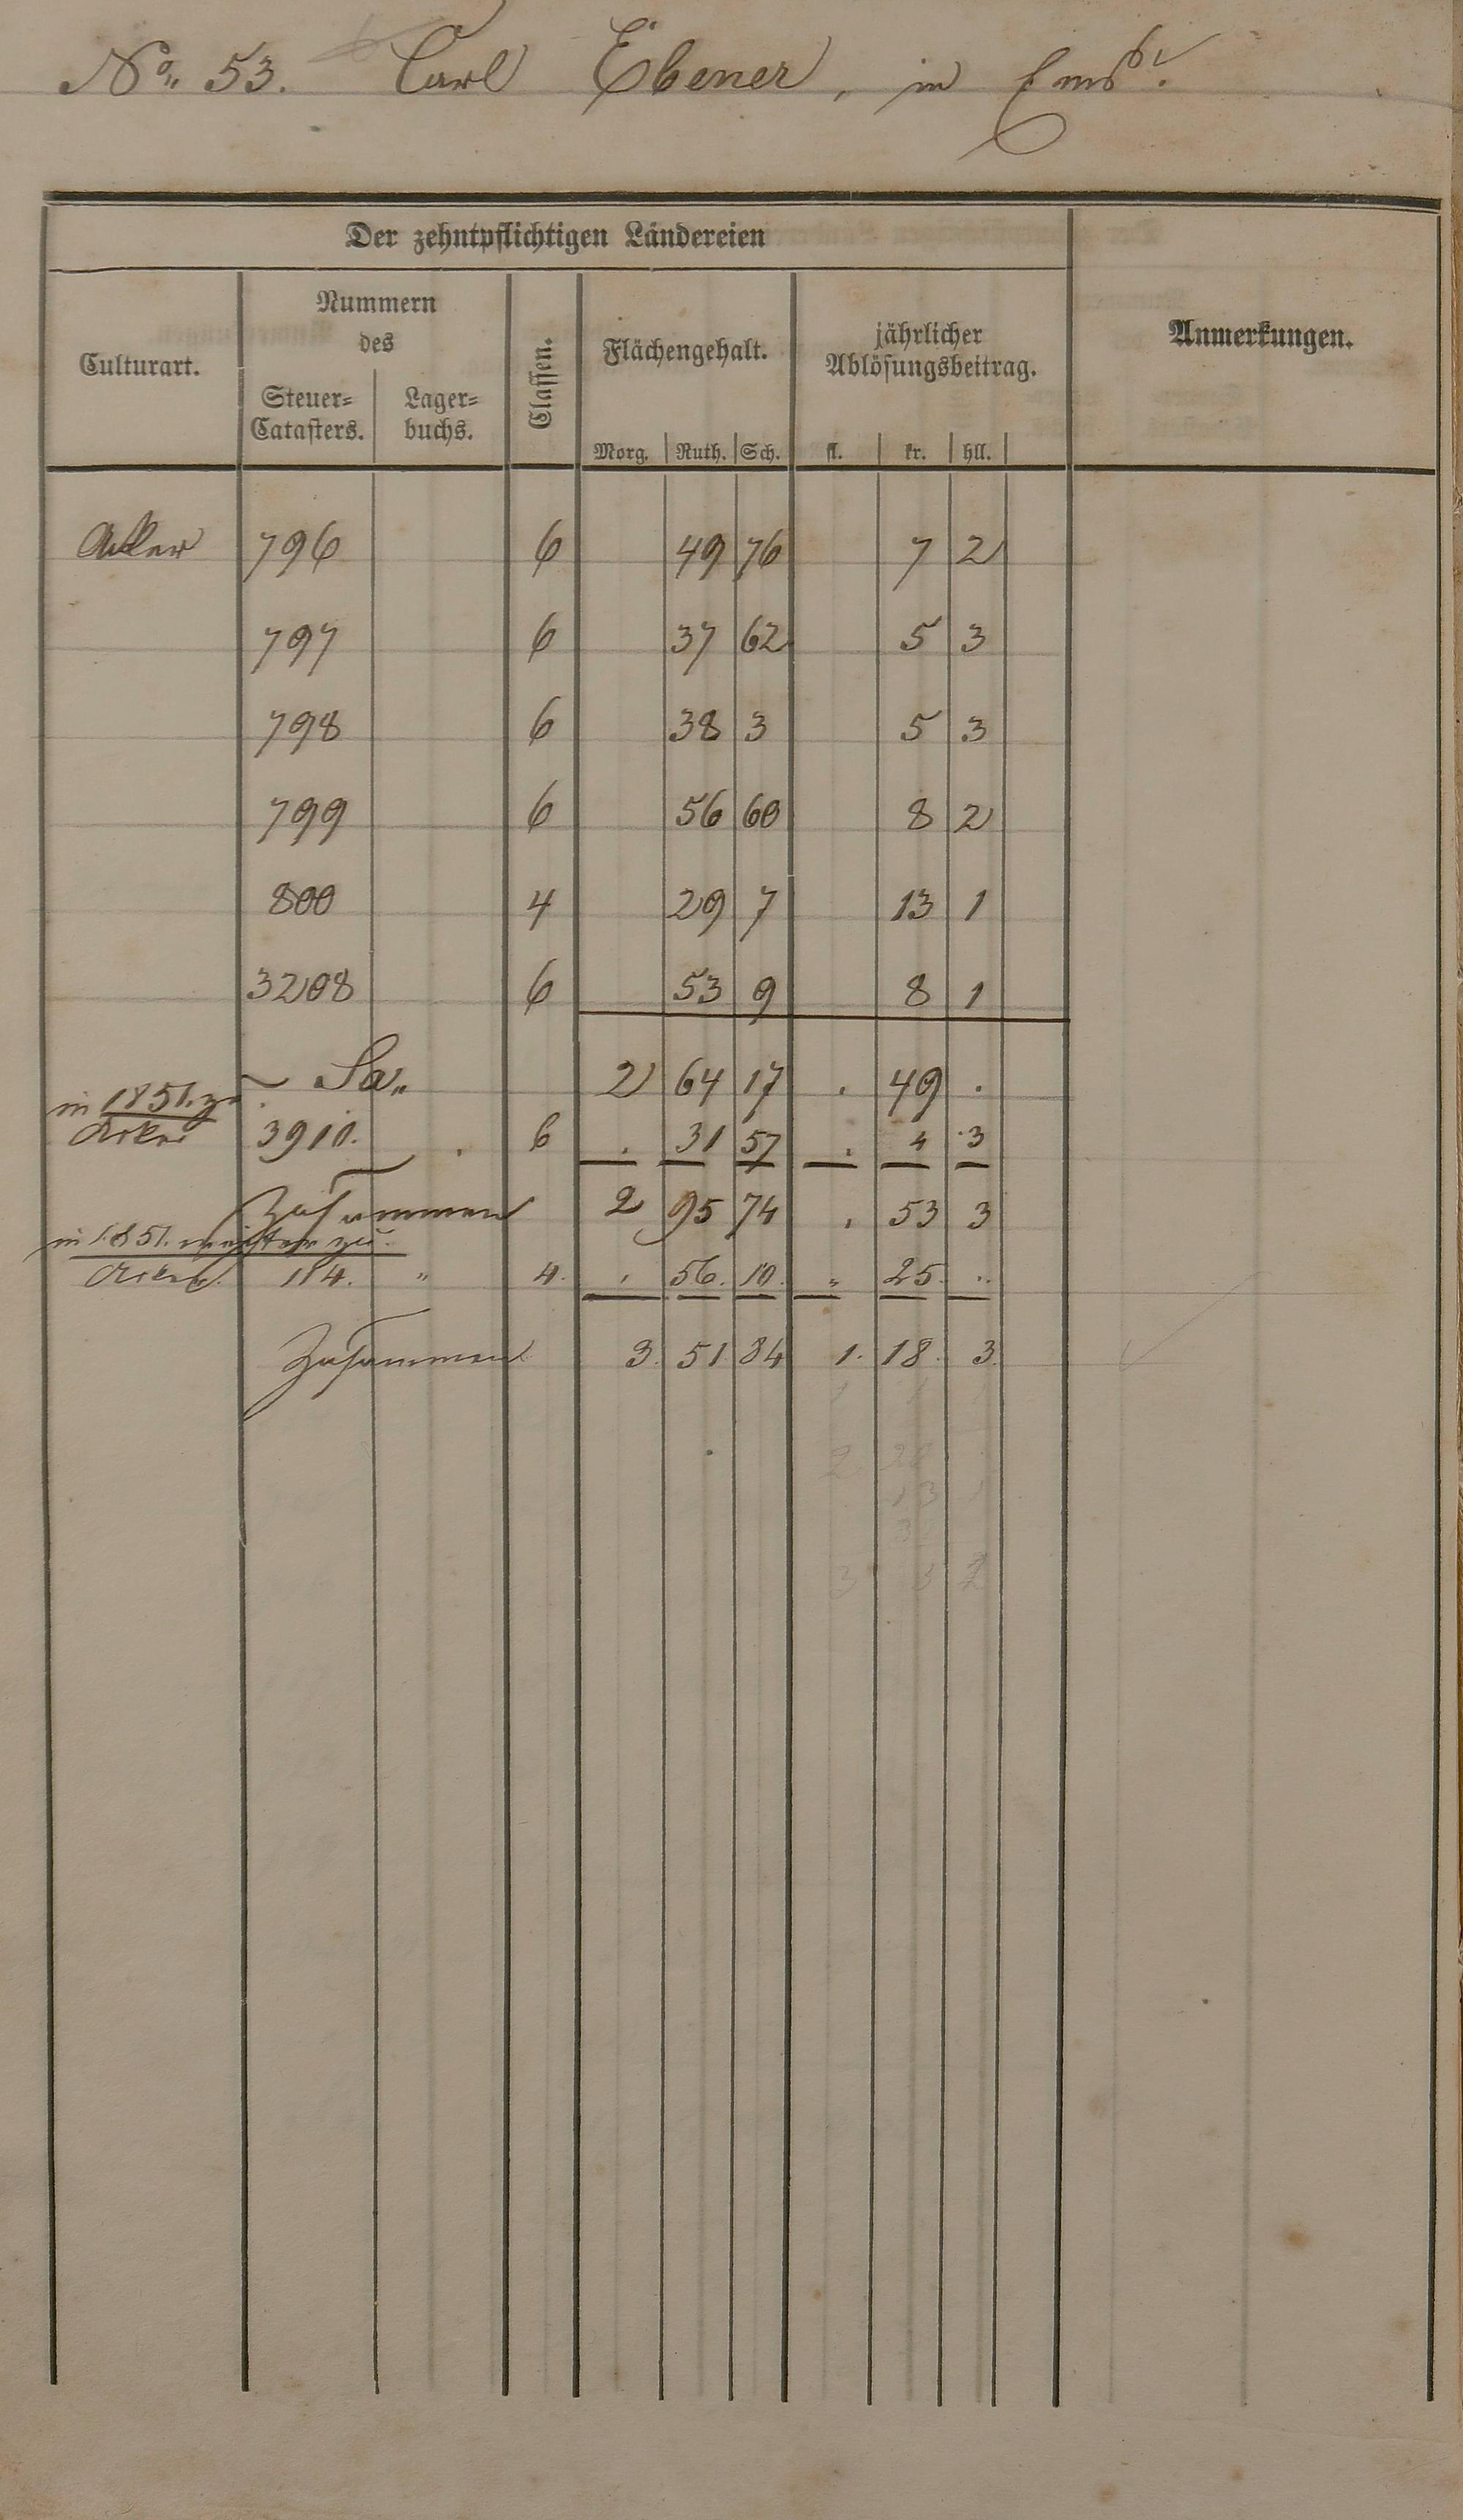 No. 53. Carl Ebener, in Ems.
Der zehntpflichtigen Ländereien
Culturart. Nummern des Steuer-Catasters. Lager-buchs. Classen. Flächengehalt. jährlicher Ablösungsbeitrag. Anmerkungen.
Morg. Ruth. Sch. fl. kr. hll.
Acker 796 6 49 76 7 2
797 6 37 62 5 3
798 6 38 3 5 3
799 6 56 60 8 2
800 4 29 7 13 1
3208 6 53 9 8 1
Sa. 2 64 17 . 49 .
in 1851. zu
Acker 3910. . 6 . 31 57 . 4 3
Zusammen 2 95 74 . 53 3
in 1851. weiter zu.
Acker. 114. " 4. . 56. 10. " 25. "
Zusammen 3. 51 84 1. 18. 3.